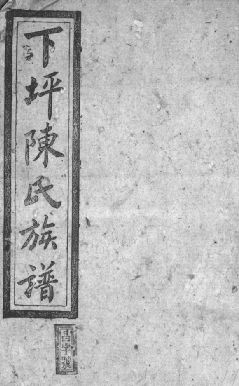 下坪陳氏族譜